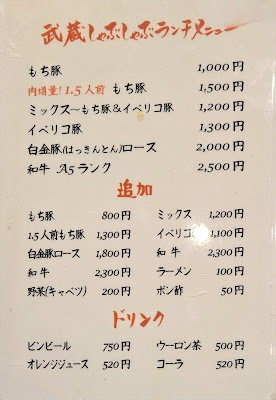 武蔵しゃぶしゃぶランチメニュー
もち豚 1,000円
肉増量！1.5人前 もち豚 1,500円
ミックス〜もち豚＆イベリコ豚 1,200円
イベリコ豚 1,300円
白金豚(はっきんとん)ロース 2,000円
和牛 A5ランク 2,500円
追加
もち豚 800円 ミックス 1,200円
1.5人前もち豚 1,300円 イベリコ 1,100円
白金豚ロース 1,800円 和牛 2,300円
和牛 2,300円 ラーメン 100円
野菜(キャベツ) 200円 ポン酢 50円
ドリンク
ビンビール 750円 ウーロン茶 500円
オレンジジュース 520円 コーラ 520円